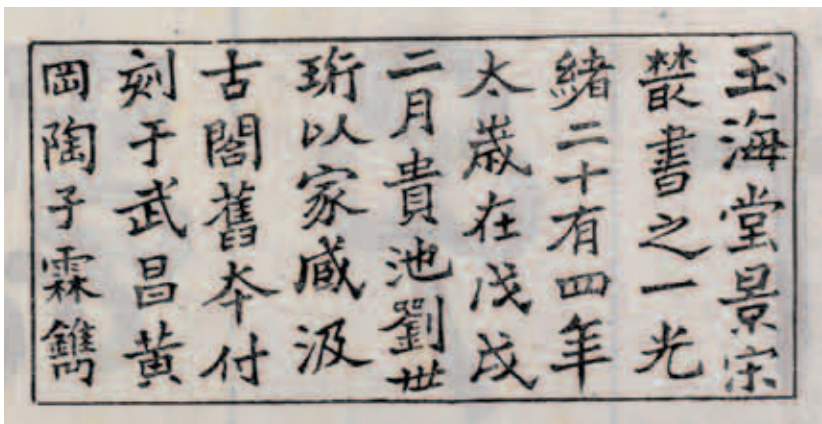 玉海堂景宋
叢書之一光
緒二十有四年
太歲在戊戌
二月貴池劉世
珩以家臧汲
古閣舊夲付
刻于武昌黃
岡陶子霖鐫